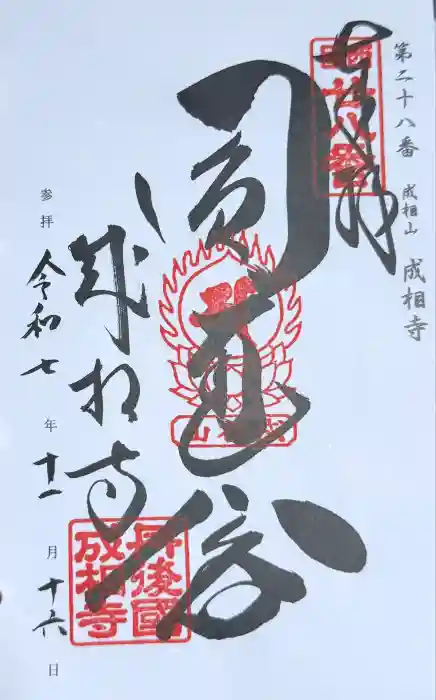 第二十八番 成相山 成相寺
奉拝
西国廿八番
圓通殿
成相山
成相寺
丹後國
成相寺
参拝 令和七年十一月十六日